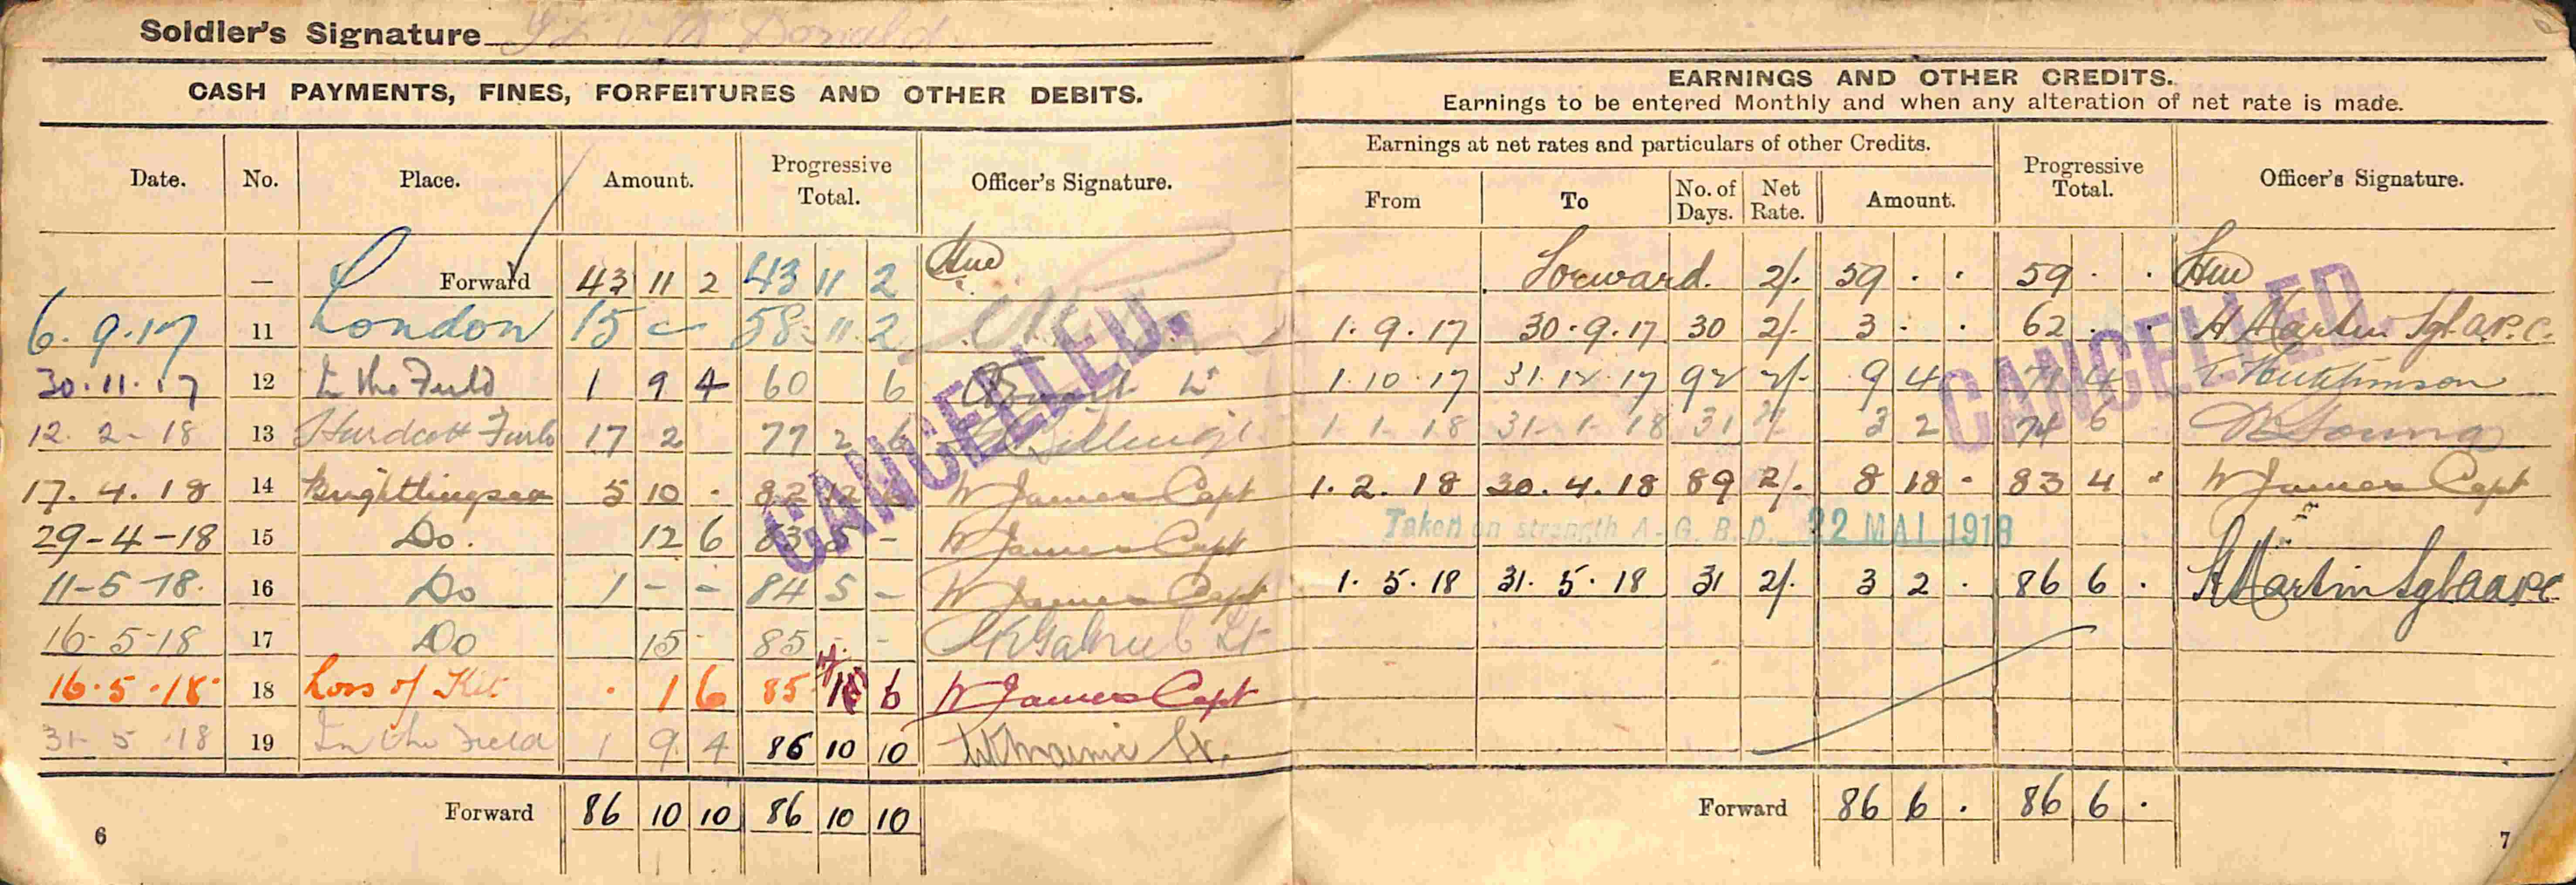 Soldier's Signature Donald
CASH PAYMENTS, FINES, FORFEITURES AND OTHER DEBITS.
Date. No. Place. Amount. Progressive Total. Officer's Signature.
— Forward 43 11 2 43 11 2
6.9.17 11 London 15 - - 58 11 2
30.11.17 12 In the Field 1 9 4 60 6
12.2-18 13 Hurdcott 17 2 77 2 6
17.4.18 14 Brightlingsea 5 10 . 82 12 6 W James Capt
29-4-18 15 Do. 12 6 83 5 - W James Capt
11-5-18. 16 Do 1 - - 84 5 - W James Capt
16-5-18 17 Do 15 - 85 - - Lt
16.5.18 18 Loss of Kit . 1 6 85 6 W James Capt
31-5-18 19 In the Field 1 9 4 86 10 10
Forward 86 10 10 86 10 10
6
CANCELLED.
EARNINGS AND OTHER CREDITS.
Earnings to be entered Monthly and when any alteration of net rate is made.
Earnings at net rates and particulars of other Credits. Progressive Total. Officer's Signature.
From To No. of Days. Net Rate. Amount.
Forward. 2/. 59 . . 59 . .
1.9.17 30.9.17 30 2/. 3 . . 62 . . H Martin Sgt A.P.C.
1.10.17 31.12.17 92 2/- 9 4 71 4 Hutchinson
1 1 18 31-1-18 31 2/- 3 2 74 6 Young
1.2.18 30.4.18 89 2/. 8 18 - 83 4 " W James Capt
Taken on strength A.G.B.D. 22 MAI 1918
1.5.18 31.5.18 31 2/. 3 2 . 86 6 . H Martin Sgt AAPC
Forward 86 6 . 86 6 .
7
CANCELLED.